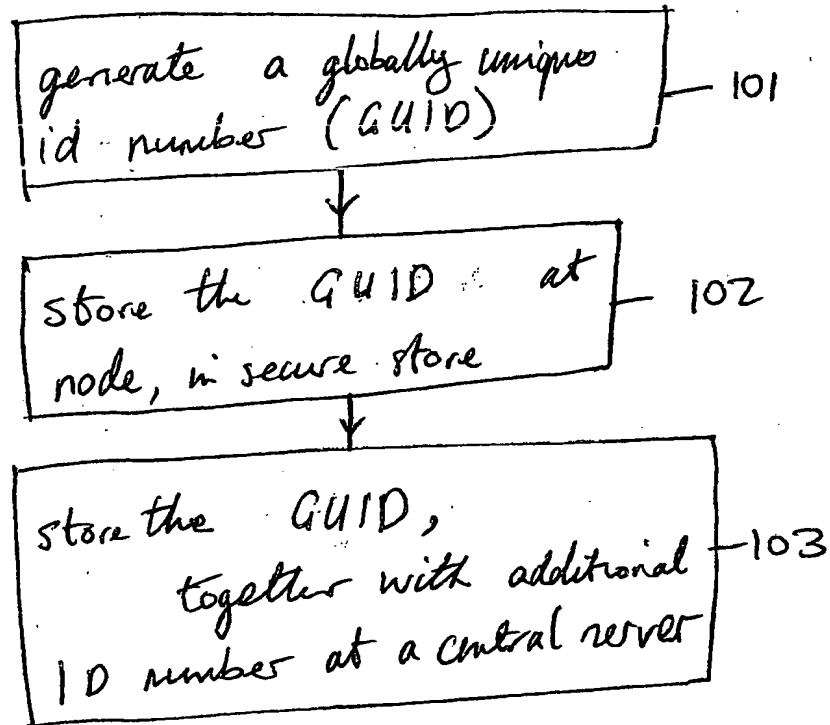 generate a globally unique
id number (GUID)
101
store the GUID at
node, in secure store
102
store the GUID,
together with additional
ID number at a central server
103